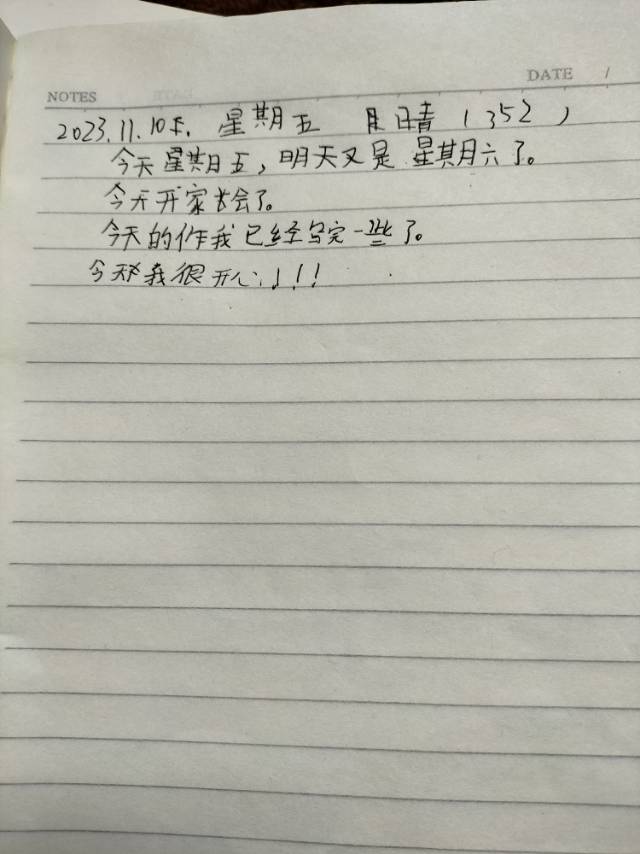 NOTES
DATE /
2023.11.10 星期五 晴 (352)
今天星期五,明天又是星期六了。
今天开家长会了。
今天的作我已经写完一些了。
今天我很开心!!!